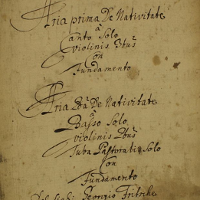 Aria prima De Nativitate
a
Canto Solo
Violinis 2bus
Con
Fundamento
Aria 2da De Nativitate
a
Basso Solo
Violinis 2bus
Tuba Pastoralis Solo
Con
Fundamento